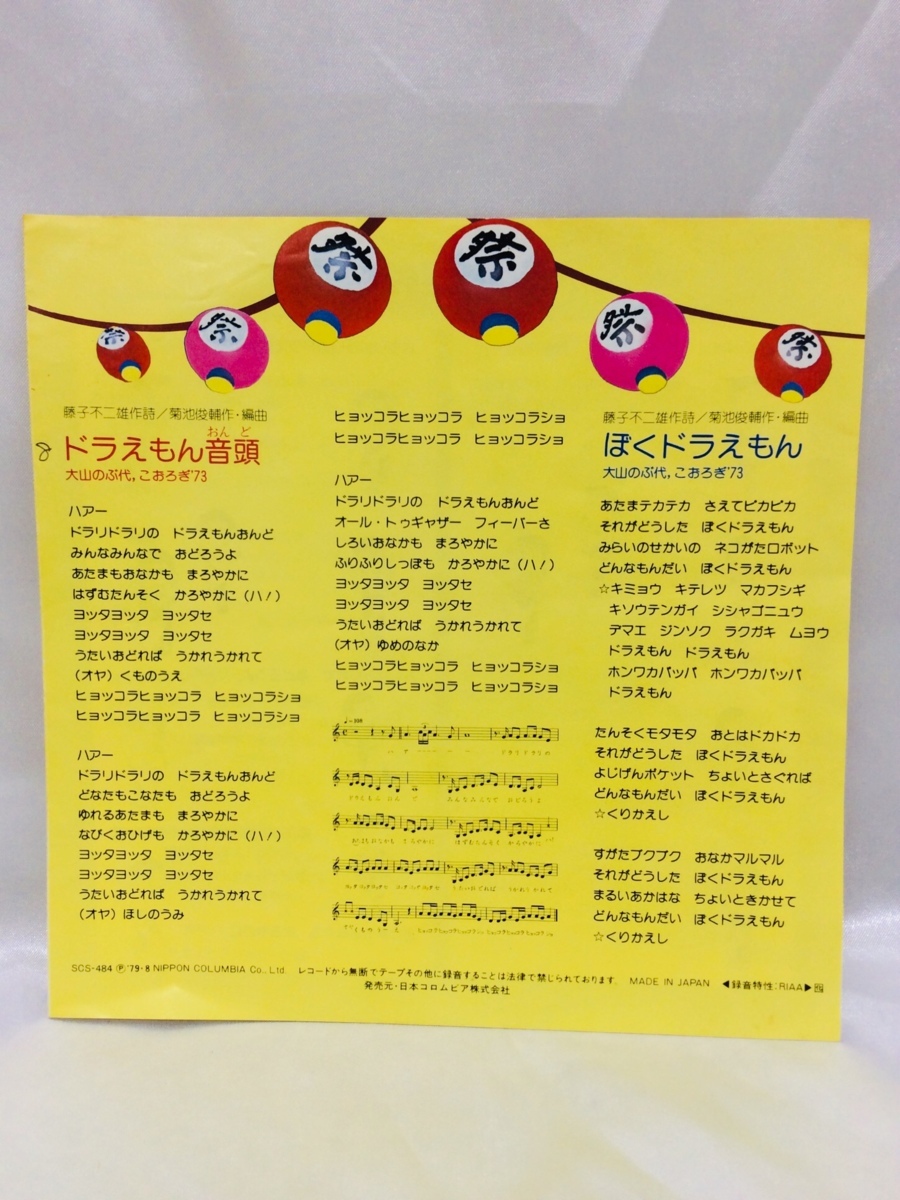 祭
祭
祭
祭
祭
祭
藤子不二雄作詩/菊池俊輔作・編曲
おんど
ドラえもん音頭
大山のぶ代,こおろぎ'73
ハアー
ドラリドラリの ドラえもんおんど
みんなみんなで おどろうよ
あたまもおなかも まろやかに
はずむたんそく かろやかに(ハ!)
ヨッタヨッタ ヨッタセ
ヨッタヨッタ ヨッタセ
うたいおどれば うかれうかれて
(オヤ)くものうえ
ヒョッコラヒョッコラ ヒョッコラショ
ヒョッコラヒョッコラ ヒョッコラショ
ハアー
ドラリドラリの ドラえもんおんど
どなたもこなたも おどろうよ
ゆれるあたまも まろやかに
なびくおひげも かろやかに(ハ!)
ヨッタヨッタ ヨッタセ
ヨッタヨッタ ヨッタセ
うたいおどれば うかれうかれて
(オヤ)ほしのうみ
ヒョッコラヒョッコラ ヒョッコラショ
ヒョッコラヒョッコラ ヒョッコラショ
ハアー
ドラリドラリの ドラえもんおんど
オール・トゥギャザー フィーバーさ
しろいおなかも まろやかに
ふりふりしっぽも かろやかに(ハ!)
ヨッタヨッタ ヨッタセ
ヨッタヨッタ ヨッタセ
うたいおどれば うかれうかれて
(オヤ)ゆめのなか
ヒョッコラヒョッコラ ヒョッコラショ
ヒョッコラヒョッコラ ヒョッコラショ
藤子不二雄作詩/菊池俊輔作・編曲
ぼくドラえもん
大山のぶ代,こおろぎ'73
あたまテカテカ さえてピカピカ
それがどうした ぼくドラえもん
みらいのせかいの ネコがたロボット
どんなもんだい ぼくドラえもん
☆キミョウ キテレツ マカフシギ
キソウテンガイ シシャゴニュウ
デマエ ジンソク ラクガキ ムヨウ
ドラえもん ドラえもん
ホンワカパッパ ホンワカパッパ
ドラえもん
たんそくモタモタ おとはドカドカ
それがどうした ぼくドラえもん
よじげんポケット ちょいとさぐれば
どんなもんだい ぼくドラえもん
☆くりかえし
すがたプクプク おなかマルマル
それがどうした ぼくドラえもん
まるいあかはな ちょいときかせて
どんなもんだい ぼくドラえもん
☆くりかえし
SCS-484 Ⓟ'79-8 NIPPON COLUMBIA Co., Ltd. レコードから無断でテープその他に録音することは法律で禁じられております. MADE IN JAPAN ◀録音特性:RIAA▶
発売元・日本コロムビア株式会社